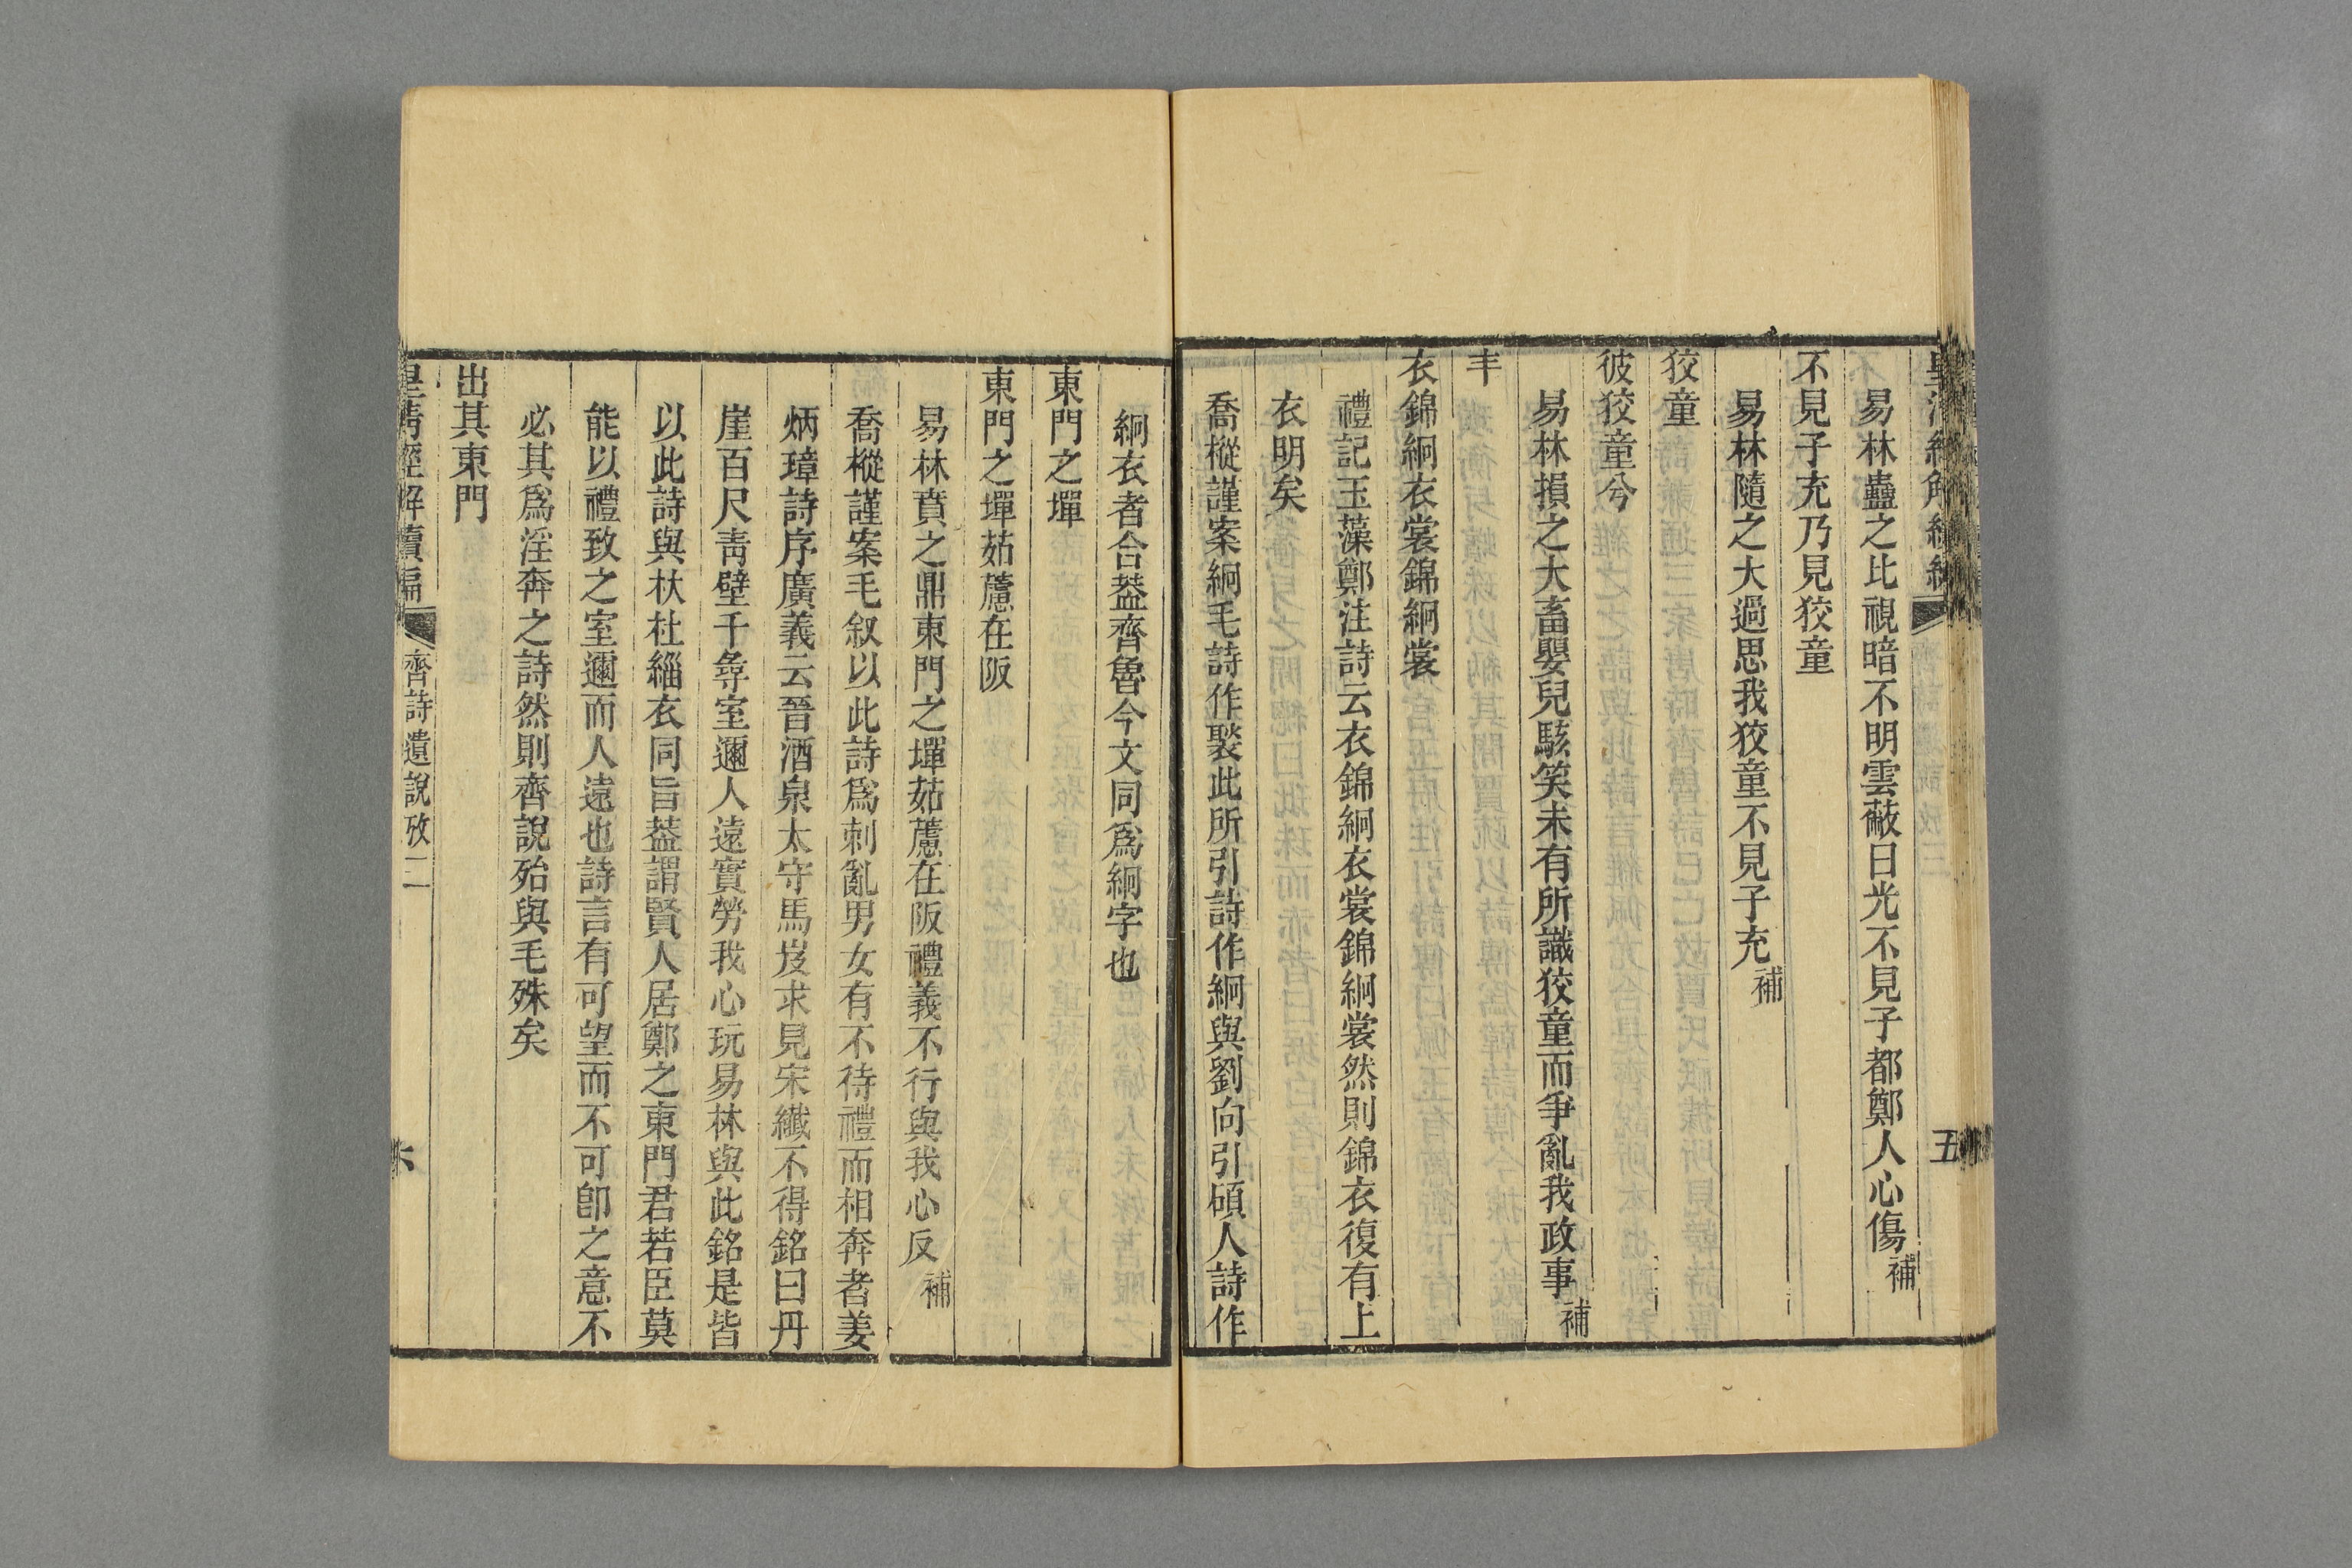 皇清經解續編
五
易林蠱之比視暗不明雲蔽日光不見子都鄭人心傷補
不見子充乃見狡童
易林隨之大過思我狡童不見子充補
狡童
彼狡童兮
易林損之大畜嬰兒駭笑未有所識狡童而爭亂我政事補
丰
衣錦絅衣裳錦絅裳
禮記玉藻鄭注詩云衣錦絅衣裳錦絅裳然則錦衣復有上
衣明矣
喬樅謹案絅毛詩作褧此所引詩作絅與劉向引碩人詩作
絅衣者合葢齊魯今文同爲絅字也
東門之墠
東門之墠茹藘在阪
易林賁之鼎東門之墠茹藘在阪禮義不行與我心反補
喬樅謹案毛叙以此詩爲刺亂男女有不待禮而相奔者姜
炳璋詩序廣義云晉酒泉太守馬岌求見宋纖不得銘曰丹
崖百尺靑壁千尋室邇人遠實勞我心玩易林與此銘是皆
以此詩與杕杜緇衣同旨葢謂賢人居鄭之東門君若臣莫
能以禮致之室邇而人遠也詩言有可望而不可卽之意不
必其爲淫奔之詩然則齊說殆與毛殊矣
出其東門
皇清經解續編
齊詩遺說攷二
六